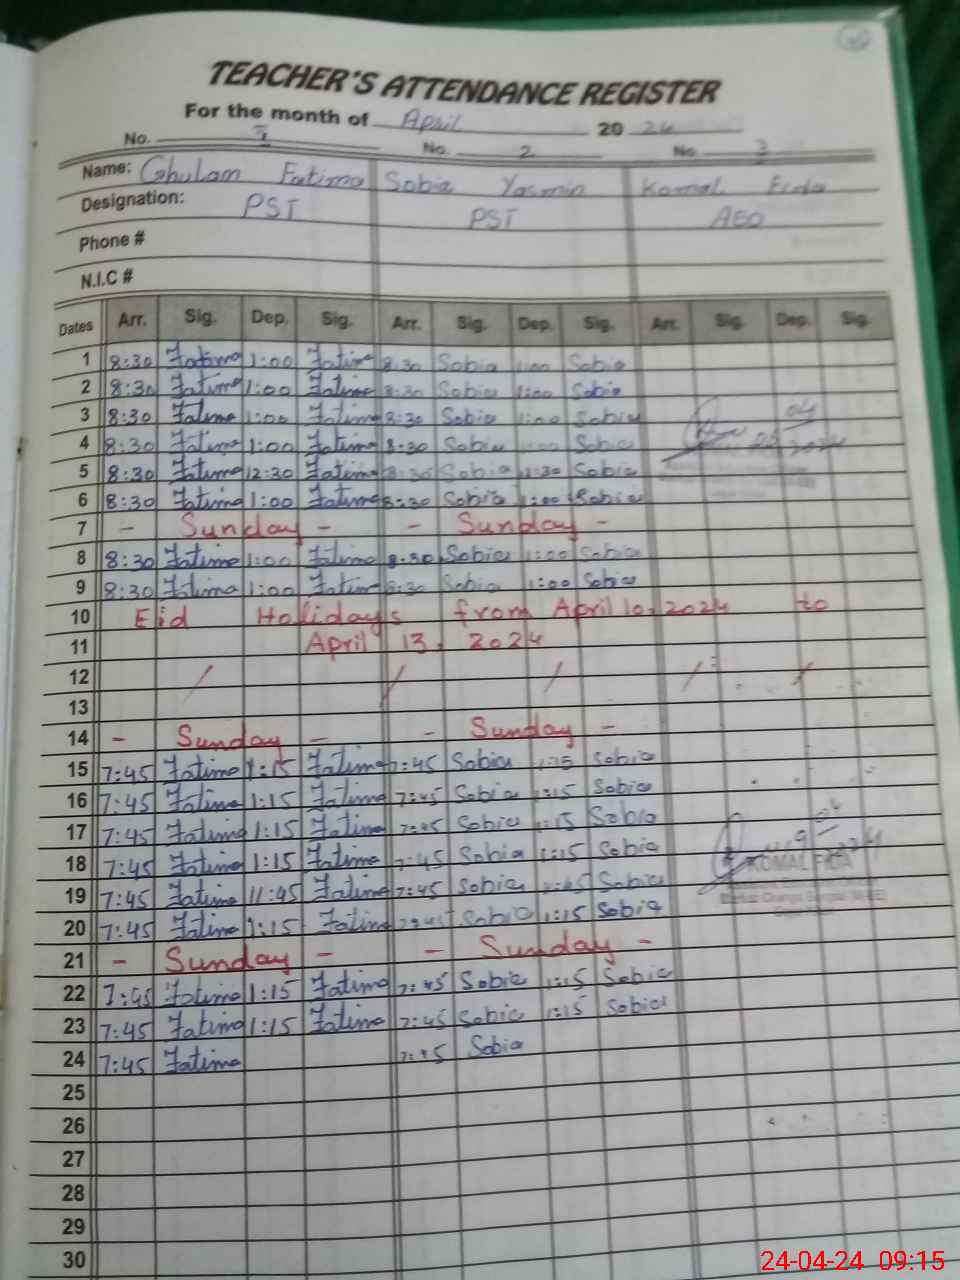 TEACHER'S ATTENDANCE REGISTER
For the month of April 20 24
No. 1 No. 2 No 3
Name: Ghulam Fatima Sobia Yasmin Komal Fida
Designation: PST PST AEO
Phone #
N.I.C #
Dates Arr. Sig. Dep. Sig. Arr. Sig. Dep. Sig. Arr. Sig. Dep. Sig.
1 8:30 Fatima 1:00 Fatima 8:30 Sobia 1:00 Sobia
2 8:30 Fatima 1:00 Fatima 8:30 Sobia 1:00 Sobia
3 8:30 Fatima 1:00 Fatima 8:30 Sobia 1:00 Sobia
4 8:30 Fatima 1:00 Fatima 8:30 Sobia 1:00 Sobia
5 8:30 Fatima 12:30 Fatima 8:30 Sobia 12:30 Sobia
6 8:30 Fatima 1:00 Fatima 8:30 Sobia 1:00 Sobia
7 - Sunday - - Sunday -
8 8:30 Fatima 1:00 Fatima 8:30 Sobia 1:00 Sobia
9 8:30 Fatima 1:00 Fatima 8:30 Sobia 1:00 Sobia
10 Eid Holidays from April 10, 2024 to
11 April 13, 2024
12
13
14 - Sunday - - Sunday -
15 7:45 Fatima 1:15 Fatima 7:45 Sobia 1:15 Sobia
16 7:45 Fatima 1:15 Fatima 7:45 Sobia 1:15 Sobia
17 7:45 Fatima 1:15 Fatima 7:45 Sobia 1:15 Sobia
18 7:45 Fatima 1:15 Fatima 7:45 Sobia 1:15 Sobia
KOMAL FIDA
19 7:45 Fatima 11:45 Fatima 7:45 Sobia Sobia
20 7:45 Fatima 1:15 Fatima 7:45 Sobia 1:15 Sobia
21 - Sunday - - Sunday -
22 7:45 Fatima 1:15 Fatima 7:45 Sobia 1:15 Sobia
23 7:45 Fatima 1:15 Fatima 7:45 Sobia 1:15 Sobia
24 7:45 Fatima 7:45 Sobia
25
26
27
28
29
30
24-04-24 09:15